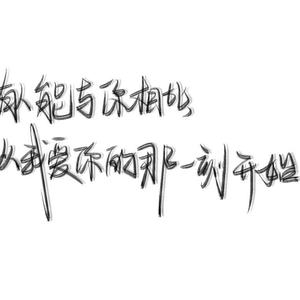 有人能与你相比
从我爱你的那一刻开始